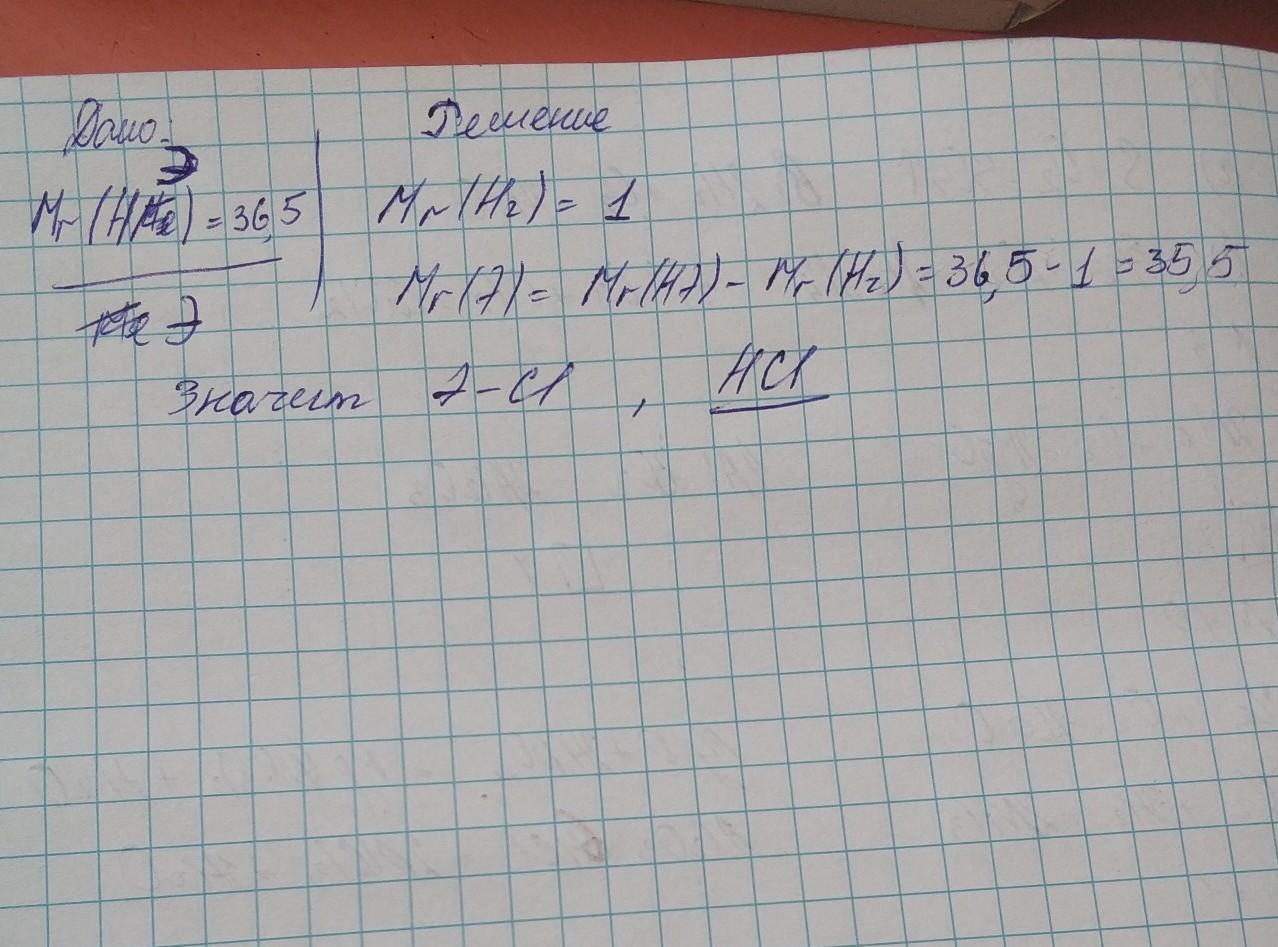 Дано:
Mr(HЭ) = 36,5
Э
Решение
Mr(H₂) = 1
Mr(Э) = Mr(HЭ) - Mr(H₂) = 36,5 - 1 = 35,5
Значит Э - Cl , HCl